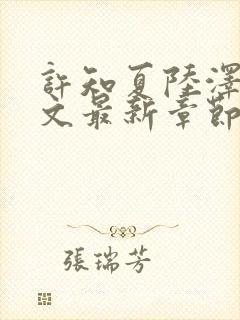 許知夏陸澤
文最新章節
張瑞芳